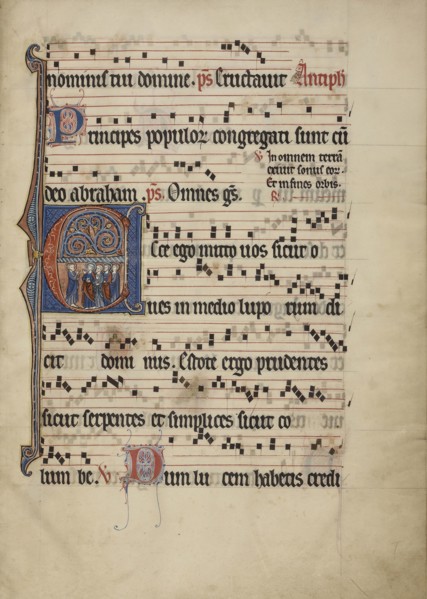 nominis tui domine. ps Eructauit Antiph
Principes populor congregati sunt cū
℣ In omnem terrā
exiuit sonus eor.
Et in fines orbis.
deo abraham. ps Omnes gs. ℟
Ecce ego mitto uos sicut o
ues in medio lupo rum di
cit domi nus. Estote ergo prudentes
sicut serpentes et simplices sicut co
lum be. ℣ Dum lu cem habetis credi